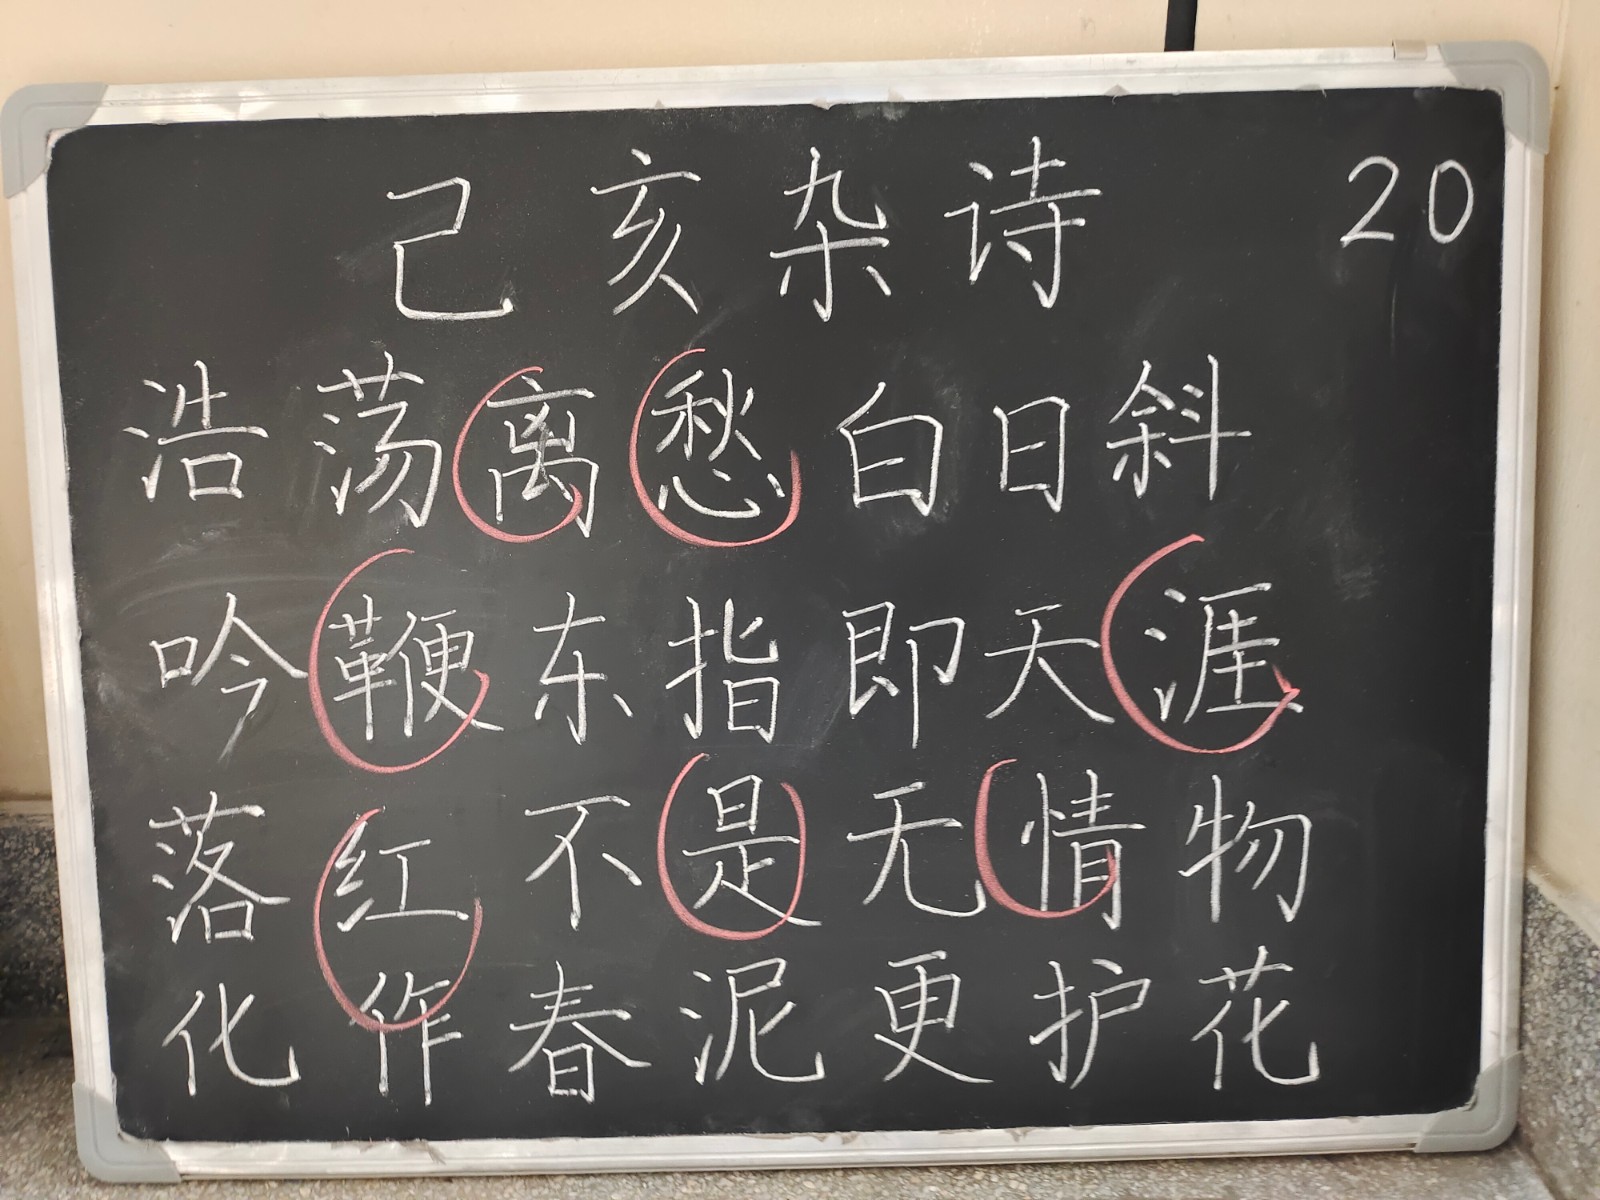 己亥杂诗 20
浩荡离愁白日斜
吟鞭东指即天涯
落红不是无情物
化作春泥更护花